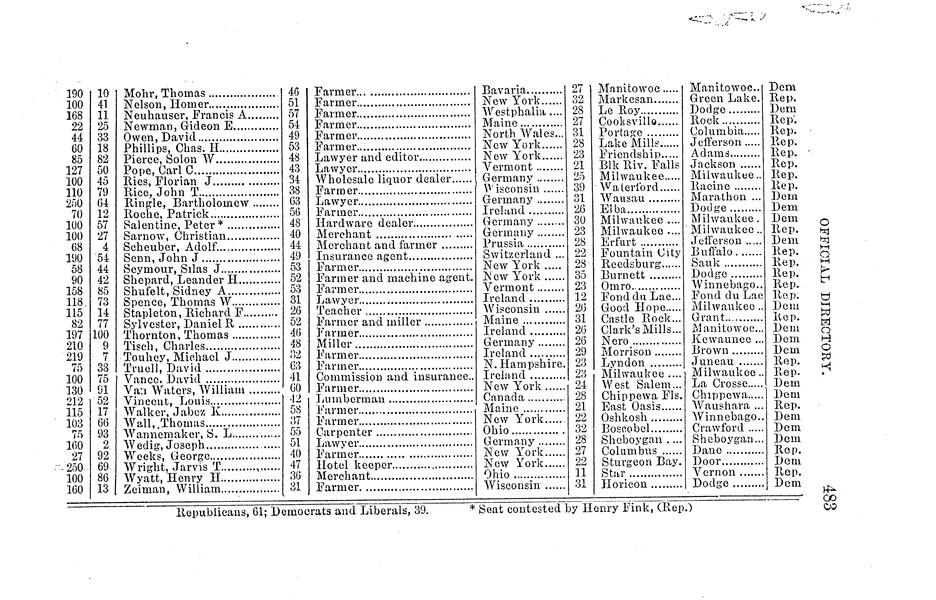 190 10 Mohr, Thomas 46 Farmer Bavaria 27 Manitowoc Manitowoc Dem
100 41 Nelson, Homer 51 Farmer New York 32 Markesan Green Lake. Rep.
168 11 Neuhauser, Francis A 57 Farmer Westphalia 28 Le Roy Dodge Dem
22 25 Newman, Gideon E 54 Farmer Maine 27 Cooksville Rock Rep.
44 33 Owen, David 49 Farmer North Wales 31 Portage Columbia Rep.
60 18 Phillips, Chas. H 53 Farmer New York 28 Lake Mills Jefferson Rep.
85 82 Pierce, Solon W 48 Lawyer and editor New York 23 Friendship Adams Rep.
127 50 Pope, Carl C 43 Lawyer Vermont 21 Blk Riv. Falls Jackson Rep.
100 45 Ries, Florian J 34 Wholesale liquor dealer Germany 25 Milwaukee Milwaukee Rep.
110 79 Rice, John T 38 Farmer Wisconsin 39 Waterford Racine Rep.
250 64 Ringle, Bartholomew 63 Lawyer Germany 31 Wausau Marathon Dem
70 12 Roche, Patrick 56 Farmer Ireland 26 Elba Dodge Dem
100 57 Salentine, Peter * 48 Hardware dealer Germany 30 Milwaukee Milwaukee Dem
100 27 Sarnow, Christian 40 Merchant Germany 23 Milwaukee Milwaukee Rep.
68 4 Scheuber, Adolf 44 Merchant and farmer Prussia 28 Erfurt Jefferson Dem
190 54 Senn, John J 49 Insurance agent Switzerland 22 Fountain City Buffalo Rep.
58 44 Seymour, Silas J 53 Farmer New York 28 Reedsburg Sauk Rep.
90 42 Shepard, Leander H 52 Farmer and machine agent. New York 35 Burnett Dodge Rep.
158 85 Shufelt, Sidney A 53 Farmer Vermont 23 Omro Winnebago Rep.
118 73 Spence, Thomas W 31 Lawyer Ireland 12 Fond du Lac Fond du Lac Rep.
115 14 Stapleton, Richard F 26 Teacher Wisconsin 26 Good Hope Milwaukee Dem
82 77 Sylvester, Daniel R 52 Farmer and miller Maine 31 Castle Rock Grant Rep.
197 100 Thornton, Thomas 46 Farmer Ireland 26 Clark's Mills Manitowoc Dem
210 9 Tisch, Charles 48 Miller Germany 26 Nero Kewaunee Dem
219 7 Touhey, Michael J 32 Farmer Ireland 29 Morrison Brown Dem
75 33 Truell, David 63 Farmer N. Hampshire. 23 Lyndon Juneau Rep.
100 75 Vance, David 41 Commission and insurance Ireland 23 Milwaukee Milwaukee Rep.
130 91 Van Waters, William 60 Farmer New York 24 West Salem La Crosse Dem
212 52 Vincent, Louis 42 Lumberman Canada 28 Chippewa Fls. Chippewa Dem
115 17 Walker, Jabez K 58 Farmer Maine 21 East Oasis Waushara Rep.
103 66 Wall, Thomas 37 Farmer New York 22 Oshkosh Winnebago Dem
75 93 Wannemaker, S. L 55 Carpenter Ohio 32 Boscobel Crawford Dem
160 2 Wedig, Joseph 51 Lawyer Germany 28 Sheboygan Sheboygan Dem
27 92 Weeks, George 40 Farmer New York 27 Columbus Dane Rep.
250 69 Wright, Jarvis T 47 Hotel keeper New York 22 Sturgeon Bay. Door Dem
100 86 Wyatt, Henry H 36 Merchant Ohio 11 Star Vernon Rep.
160 13 Zeiman, William 31 Farmer Wisconsin 31 Horicon Dodge Dem
Republicans, 61; Democrats and Liberals, 39. * Seat contested by Henry Fink, (Rep.)
OFFICIAL DIRECTORY.
483